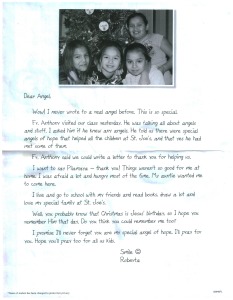 Dear Angel,
Wow! I never wrote to a real angel before. This is so special.
Fr. Anthony visited our class yesterday. He was talking all about angels
and stuff. I asked him if he knew any angels. He told us there were special
angels of hope that helped all the children at St. Joe's, and that me he had
met some of them.
Fr. Anthony said we could write a letter to thank you for helping us.
I want to say Pilamaya — thank you! Things weren't so good for me at
home. I was afraid a lot and hungry most of the time. My auntie wanted me
to come here.
I live and go to school with my friends and read books, draw a lot and
love my special family at St. Joe's.
Well, you probably know that Christmas is Jesus' birthday, so I hope you
remember Him that day. Do you think you could remember me too?
I promise I'll never forget you are my special angel of hope. I'll pray for
you. Hope you'll pray too for all us kids.
Smile ☺
Roberta